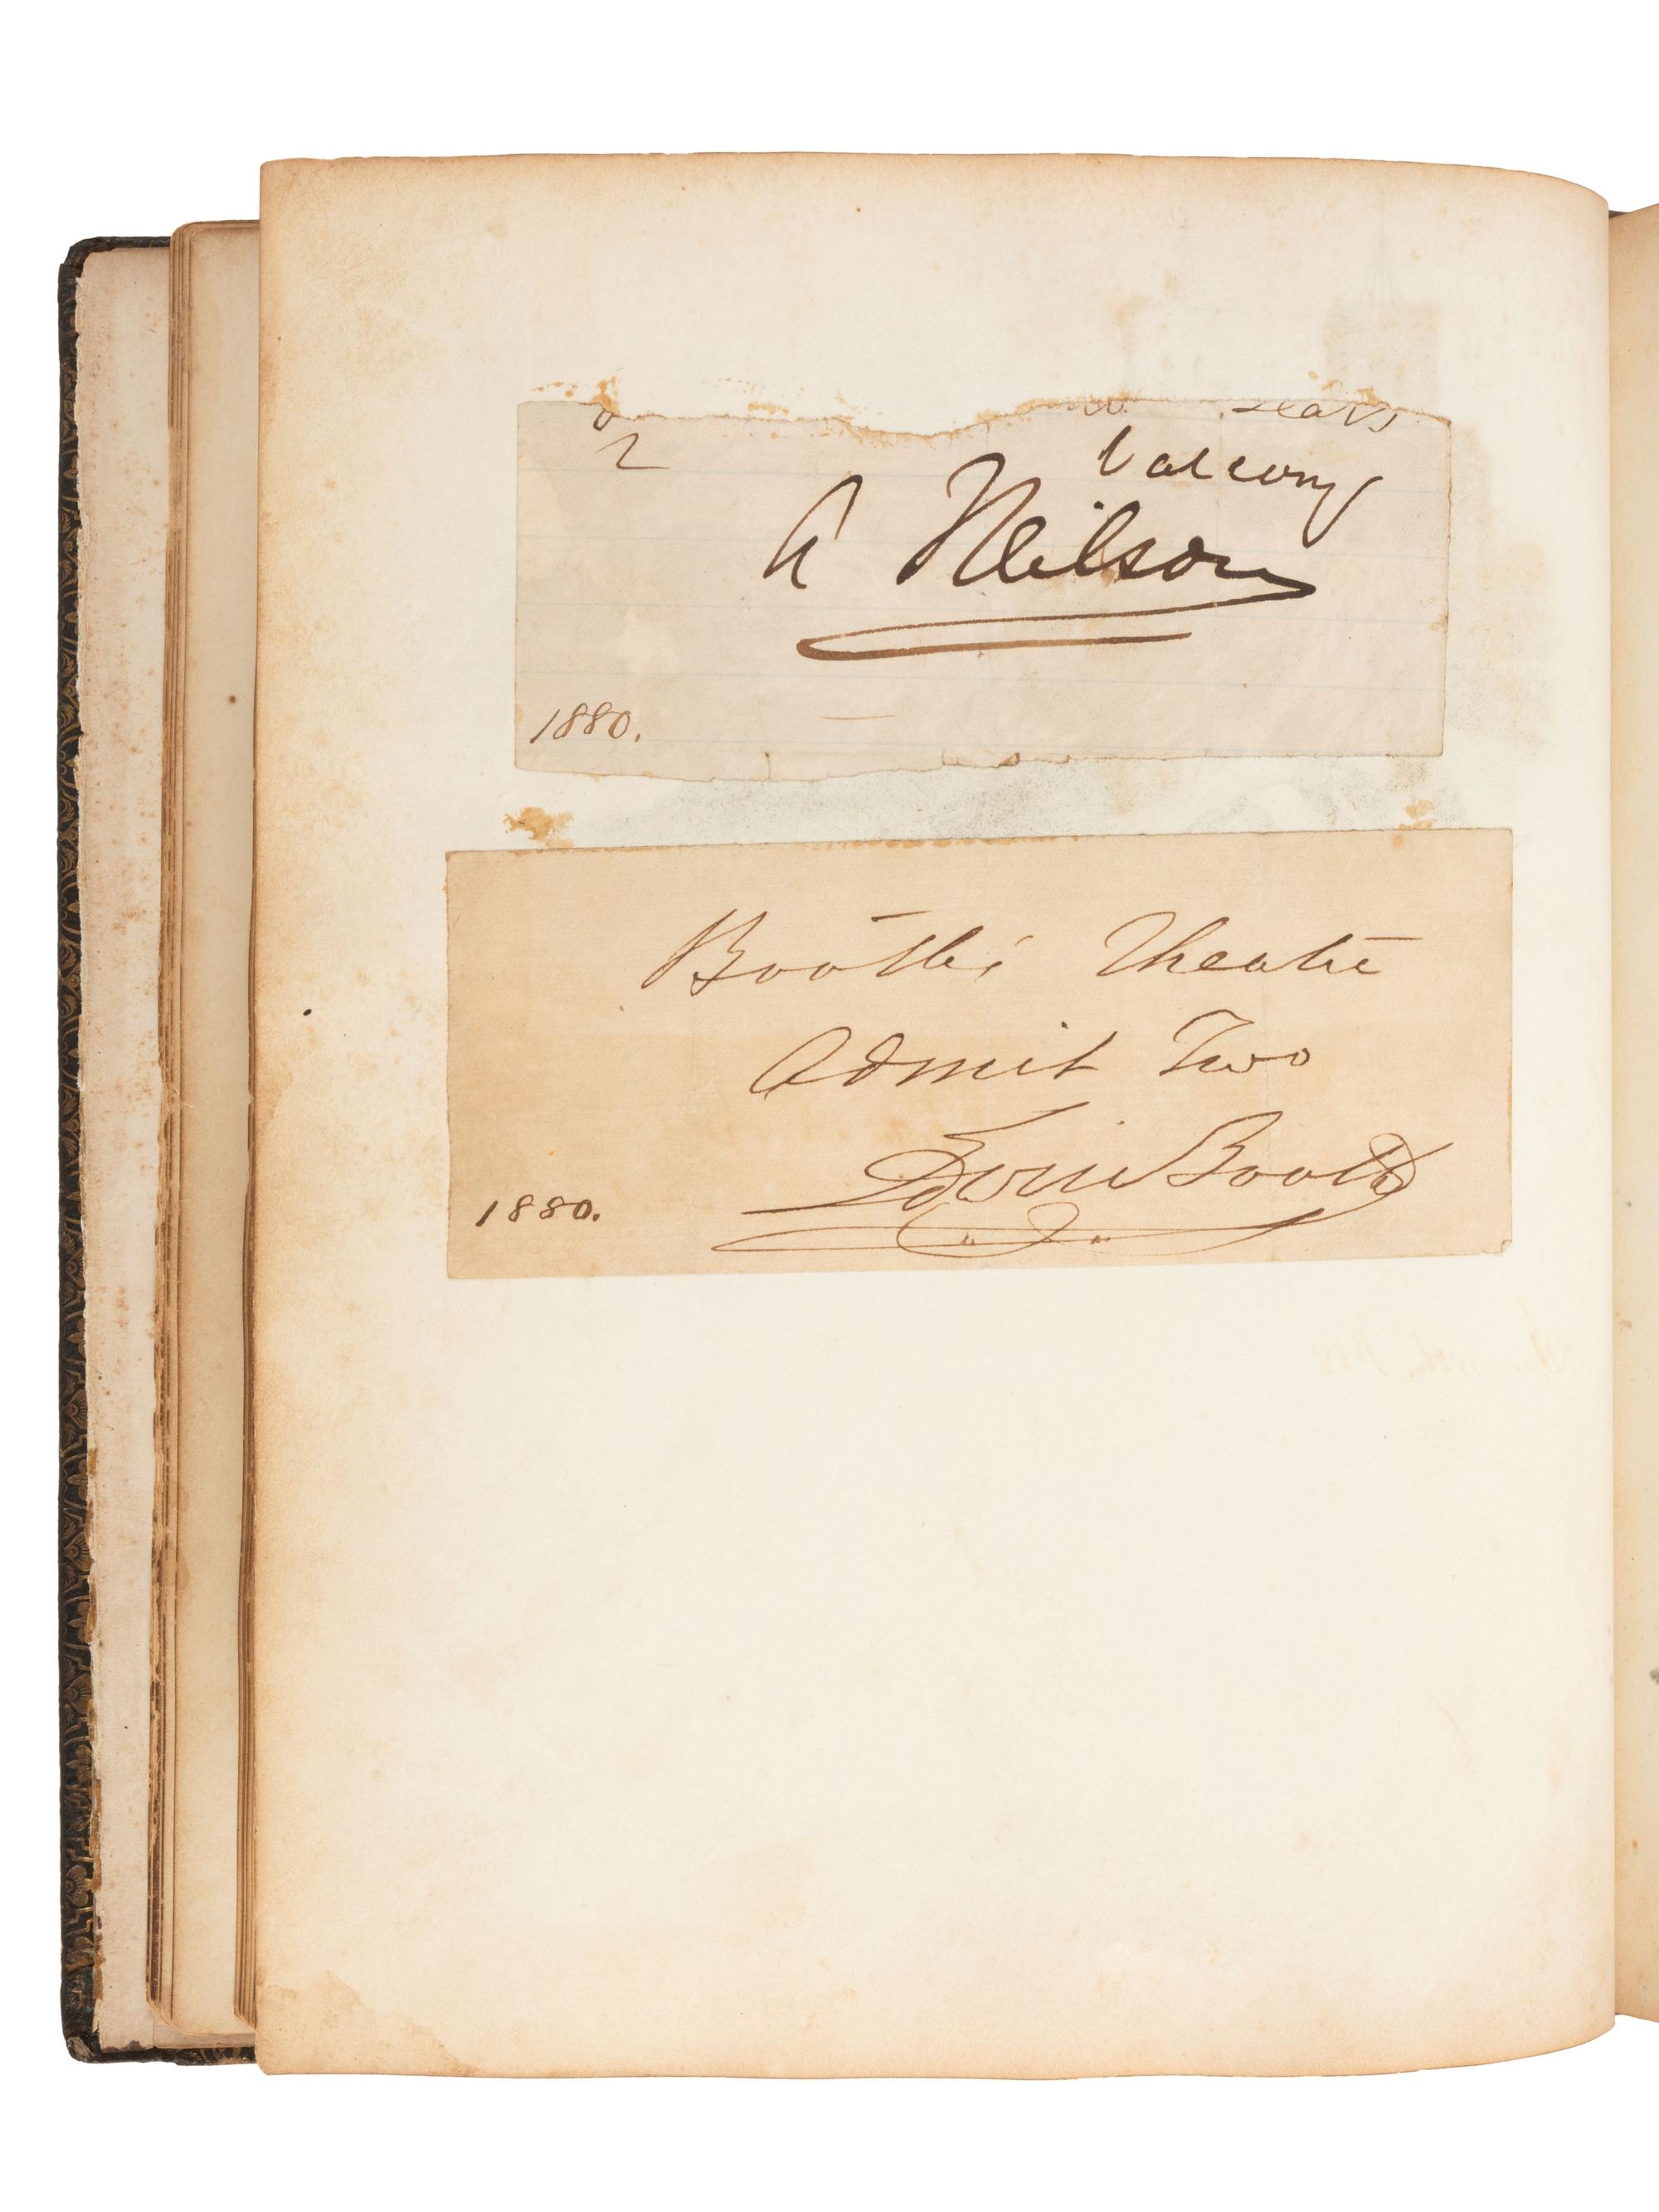 seats
2 balcony
A Neilson
1880.
Booth's Theatre
Admit Two
Edwin Booth
1880.